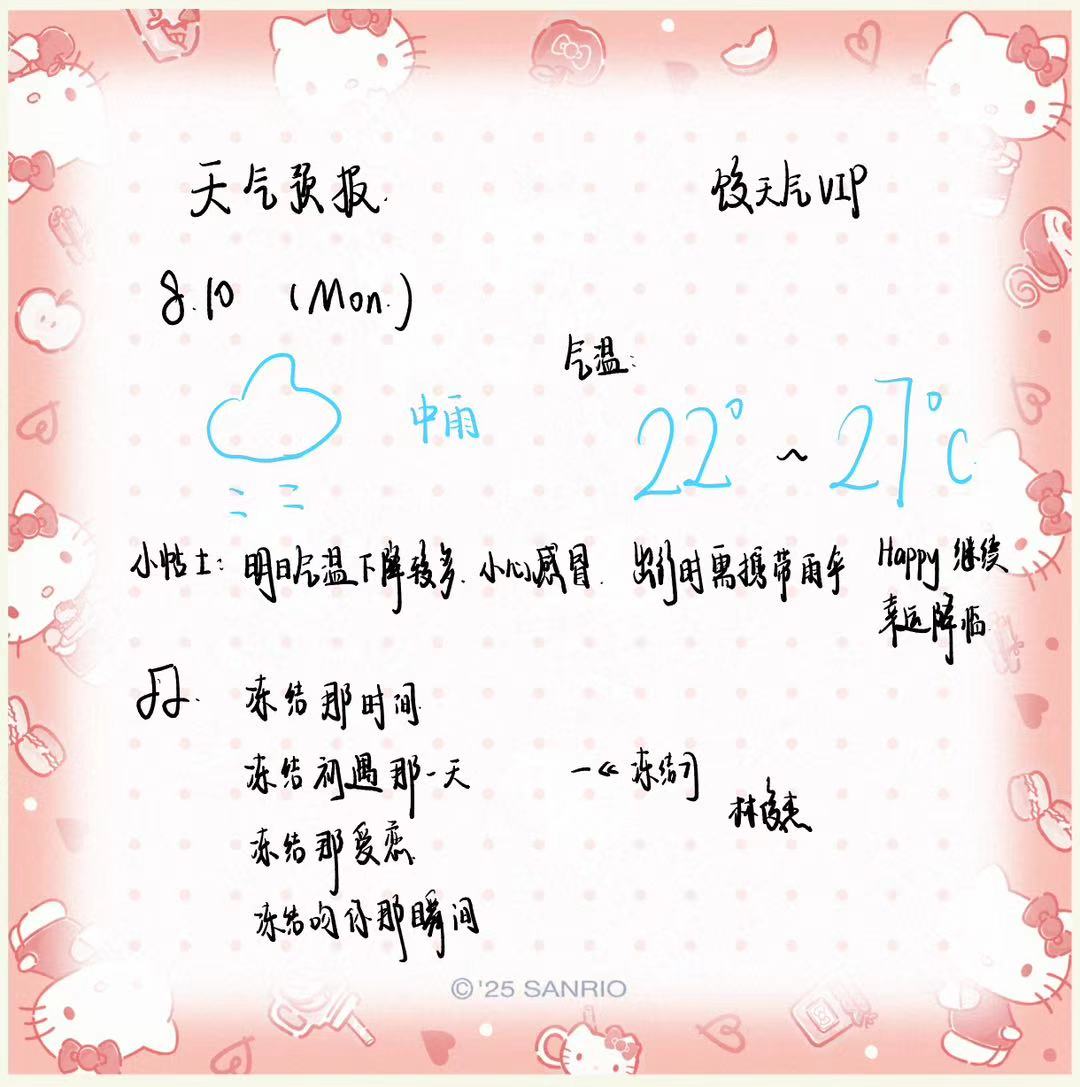 天气预报.
饺天气VIP
8.10 (Mon.)
气温:
中雨
22°~27°C
小帖士: 明日气温下降较多. 小心感冒. 出行时需携带雨伞
Happy 继续
幸运降临
冻结那时间
冻结初遇那一天
—《冻结》
林俊杰
冻结那爱恋
冻结吻你那瞬间
©'25 SANRIO